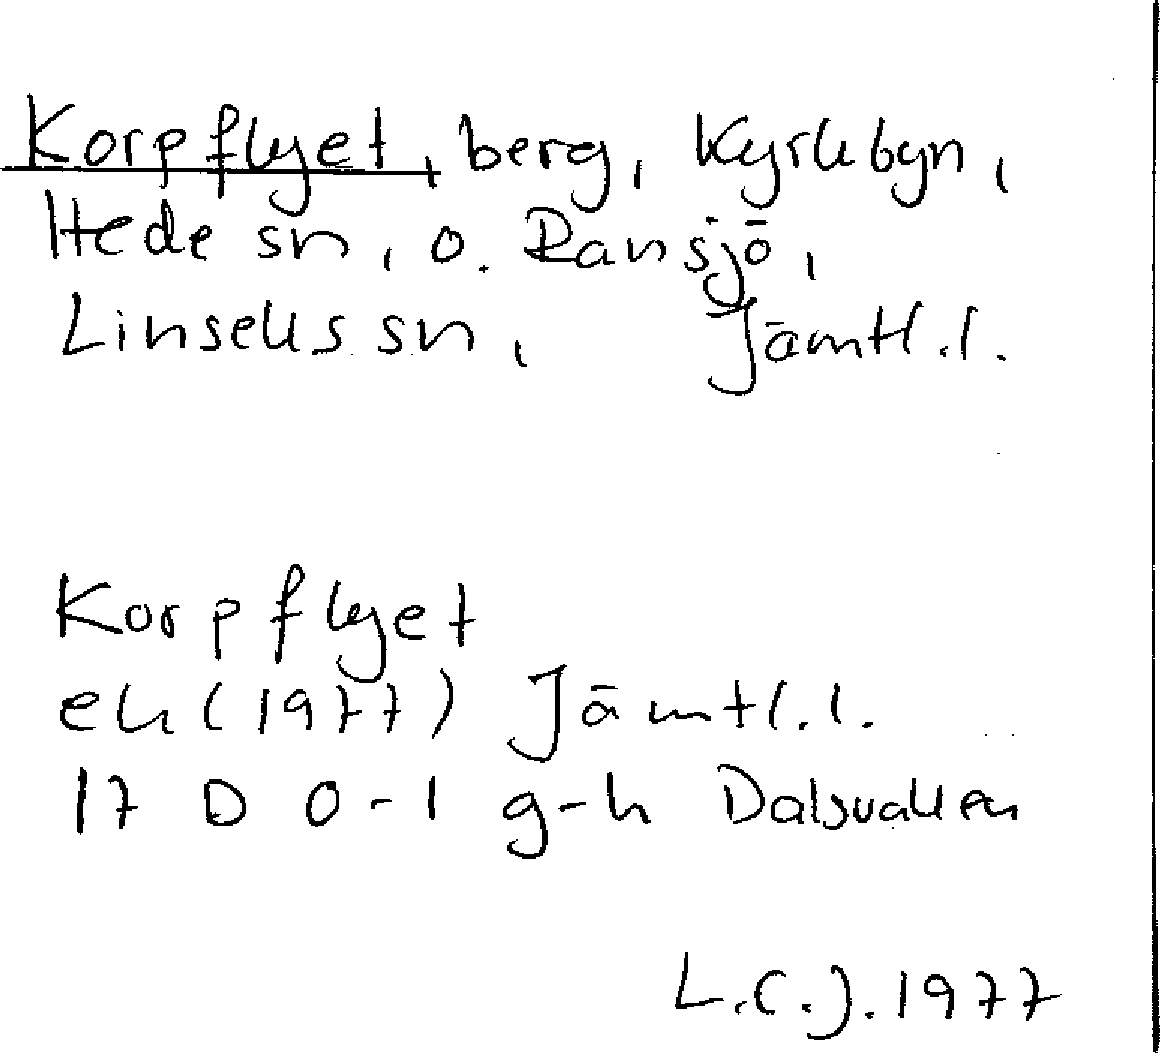 Korpflyet, berg, Kyrkbyn,
Hede sn, o. Ransjö,
Linsells sn, Jämtl.l.
Korpflyet
ek (1977) Jämtl.l.
17 D 0-1 g-h Dalsvallen
L.C.J. 1977